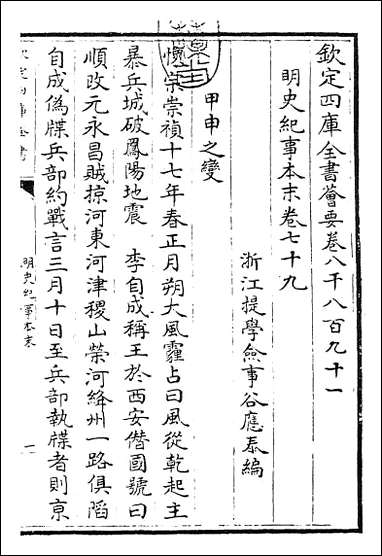 欽定四庫全書薈要卷八千八百九十一
明史紀事本末卷七十九
浙江提學僉事谷應泰編
甲申之變
懷宗崇禎十七年春正月朔大風霾占曰風從乾起主
暴兵城破鳳陽地震　李自成稱王於西安僭國號曰
順改元永昌賊掠河東河津稷山榮河絳州一路俱陷
自成偽牒兵部約戰言三月十日至兵部執牒者則京
明史紀事本末
一